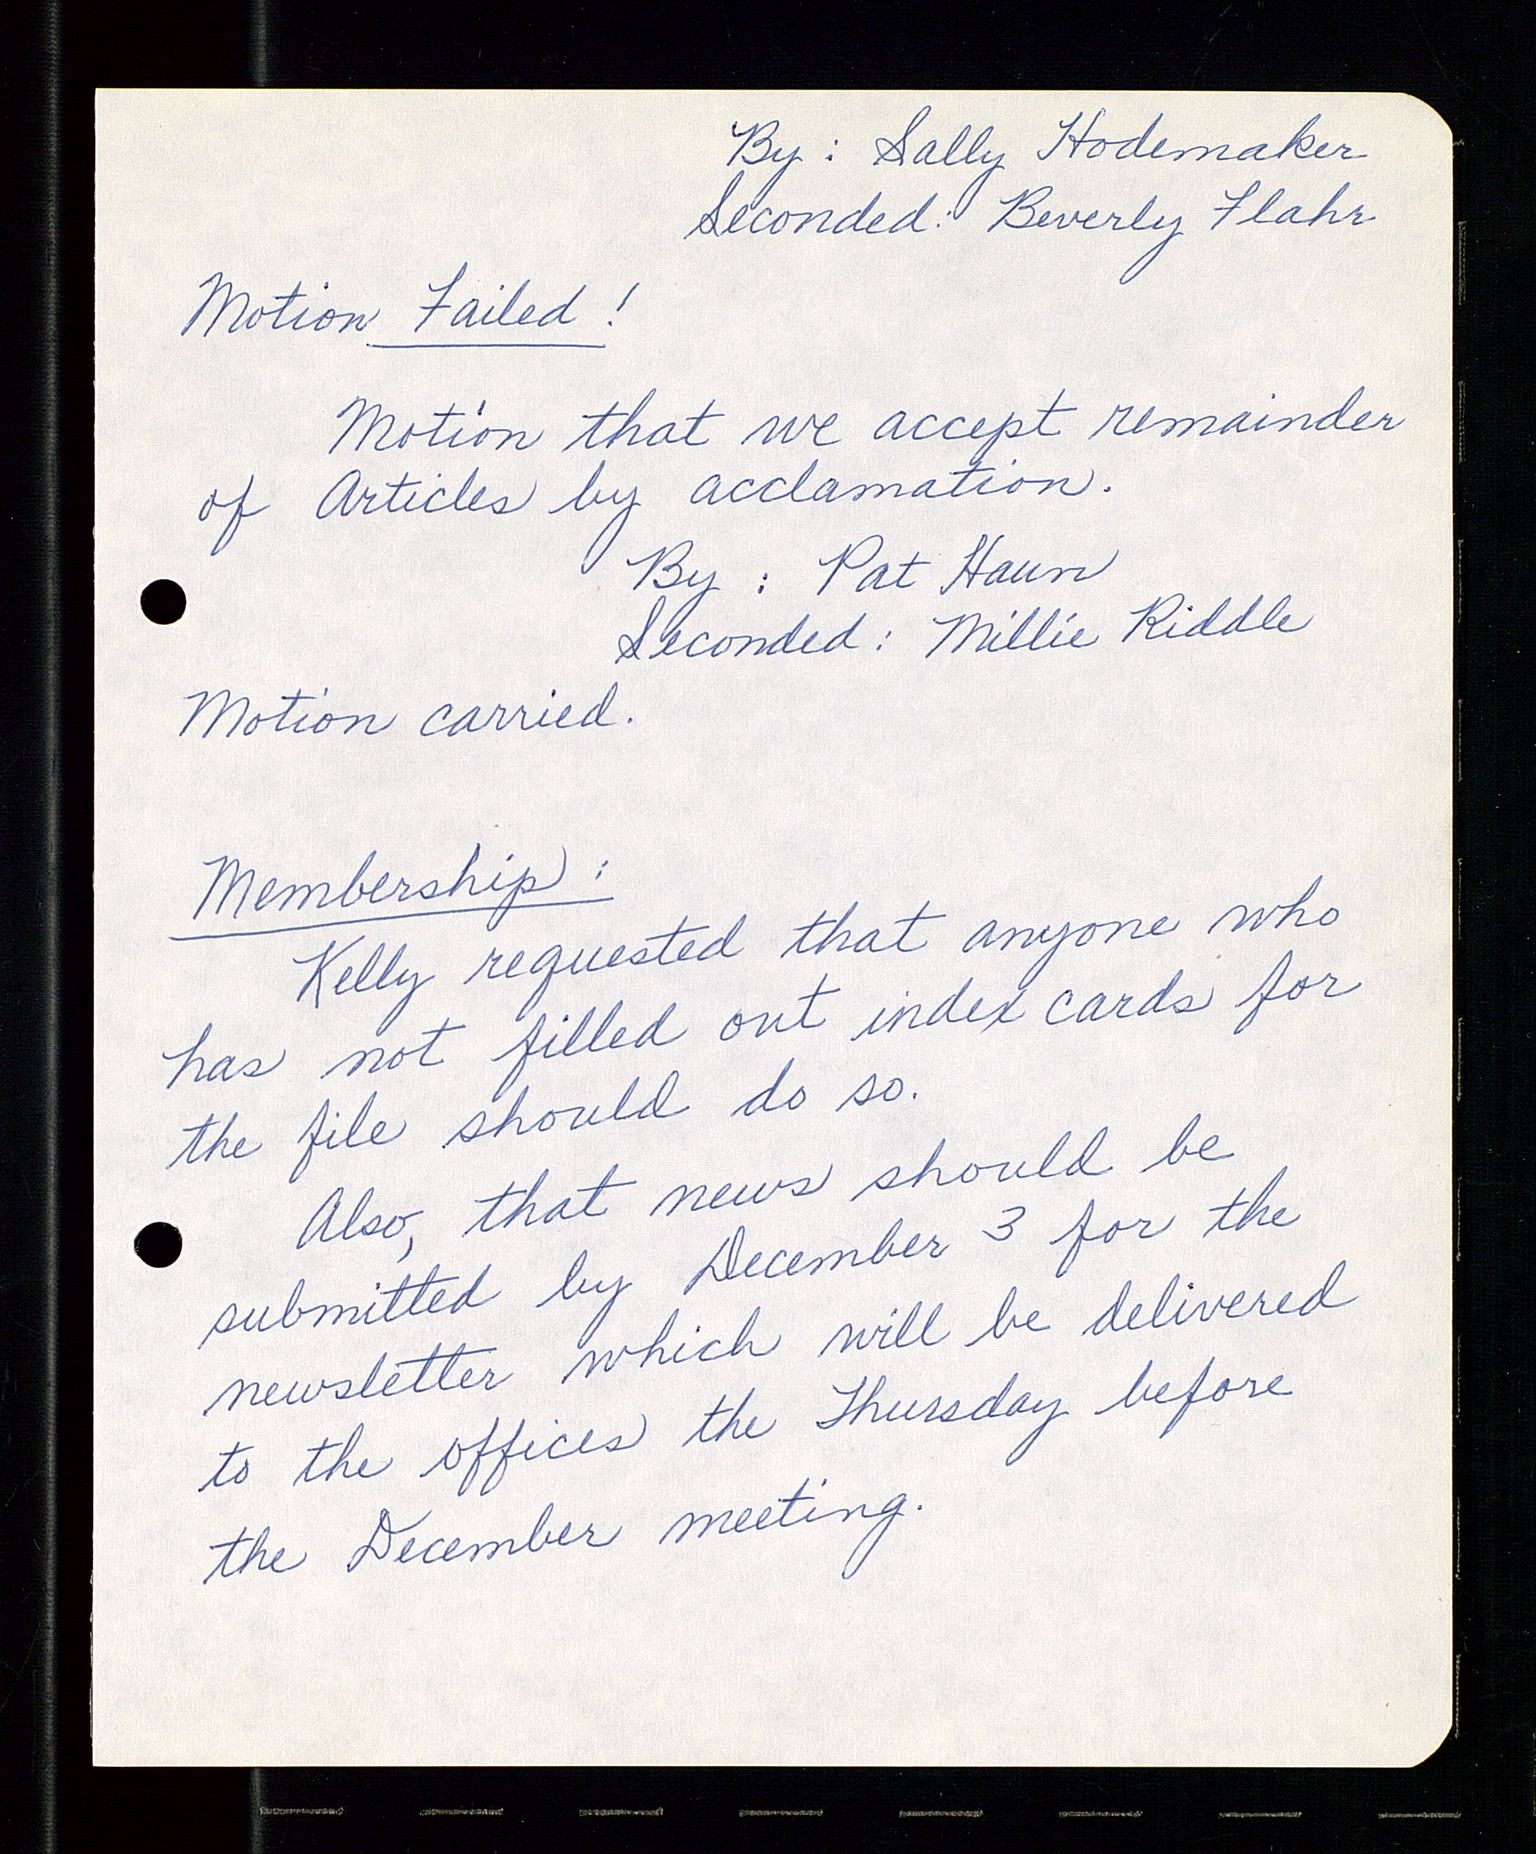 By: Sally Hodemaker
Seconded: Beverly Flahr
Motion Failed!
Motion that we accept remainder
of Articles by acclamation.
By: Pat Haun
Seconded: Millie Riddle
Motion carried.
Membership:
Kelly requested that anyone who
has not filled out index cards for
the file should do so.
Also, that news should be
submitted by December 3 for the
newsletter which will be delivered
to the offices the Thursday before
the December meeting.